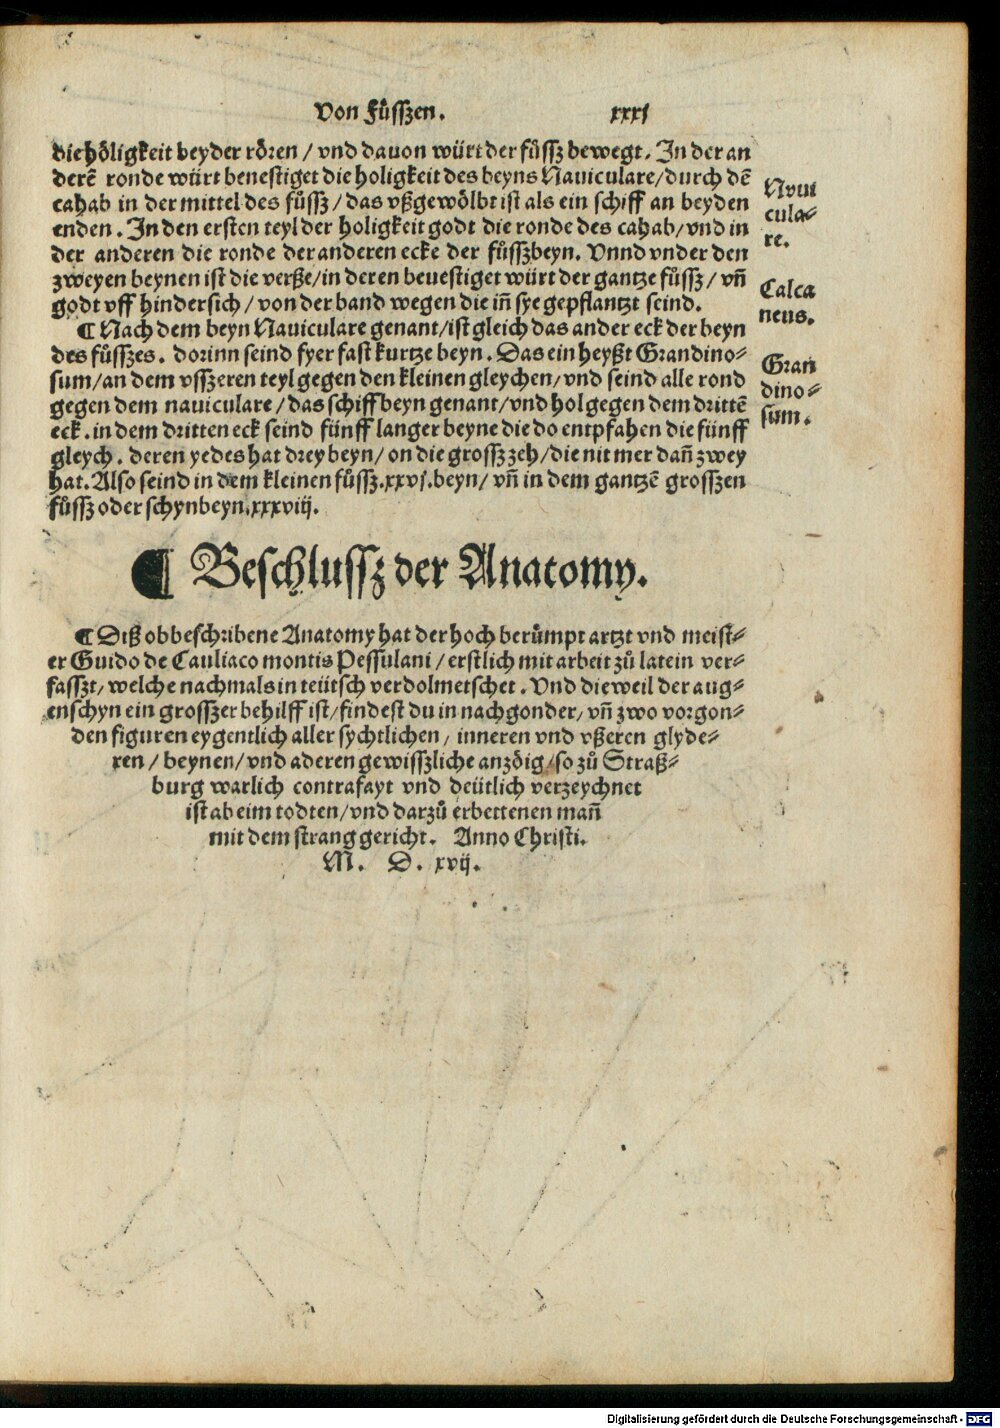 Von Fůſſzen. xxxj
die hőligkeit beyder rören / vnd dauon würt der fůſſz bewegt. In der an
derē ronde würt beneſtiget die holigkeit des beyns Nauiculare / durch dē
cahab in der mittel des fůſſz / das vßgewölbt iſt als ein ſchiff an beyden
enden. In den erſten teyl der holigkeit godt die ronde des cahab / vnd in
der anderen die ronde der anderen ecke der fůſſzbeyn. Vnnd vnder den
zweyen beynen iſt die verße / in deren beueſtiget würt der gantze fůſſz / vñ
godt vff hinderſich / von der band wegen die iñ ſye gepflantzt ſeind.
¶ Nach dem beyn Nauiculare genant / iſt gleich das ander eck der beyn
des fůſſzes. dorinn ſeind fyer faſt kurtze beyn. Das ein heyßt Grandino⸗
ſum / an dem vſſzeren teyl gegen den kleinen gleychen / vnd ſeind alle rond
gegen dem nauiculare / das ſchiffbeyn genant / vnd hol gegen dem drittē
eck. in dem dritten eck ſeind fünff langer beyne die do entpfahen die fünff
gleych. deren yedes hat drey beyn / on die groſſz zeh / die nit mer dañ zwey
hat. Alſo ſeind in dem kleinen fůſſz .xxvj. beyn / vñ in dem gantzē groſſzen
fůſſz oder ſchynbeyn .xxxviij.
Nvui
cula⸗
re.
Calca
neus.
Gran
dino⸗
ſum.
¶ Beſchluſſz der Anatomy.
¶ Diß obbeſchribene Anatomy hat der hoch berůmpt artzt vnd meiſt⸗
er Guido de Cauliaco montis Peſſulani / erſtlich mit arbeit zů latein ver⸗
faſſzt / welche nachmals in teütſch verdolmetſchet. Vnd dieweil der aug⸗
enſchyn ein groſſzer behilff iſt / findeſt du in nachgonder / vñ zwo vorgon⸗
den figuren eygentlich aller ſychtlichen / inneren vnd vßeren glyde⸗
ren / beynen / vnd aderen gewiſſzliche anzöig / ſo zů Straß⸗
burg warlich contrafayt vnd deütlich verzeychnet
iſt ab eim todten / vnd darzů erbettenen mañ
mit dem ſtrang gericht. Anno Chriſti.
M. D. xvij.
Digitalisierung gefördert durch die Deutsche Forschungsgemeinschaft - DFG